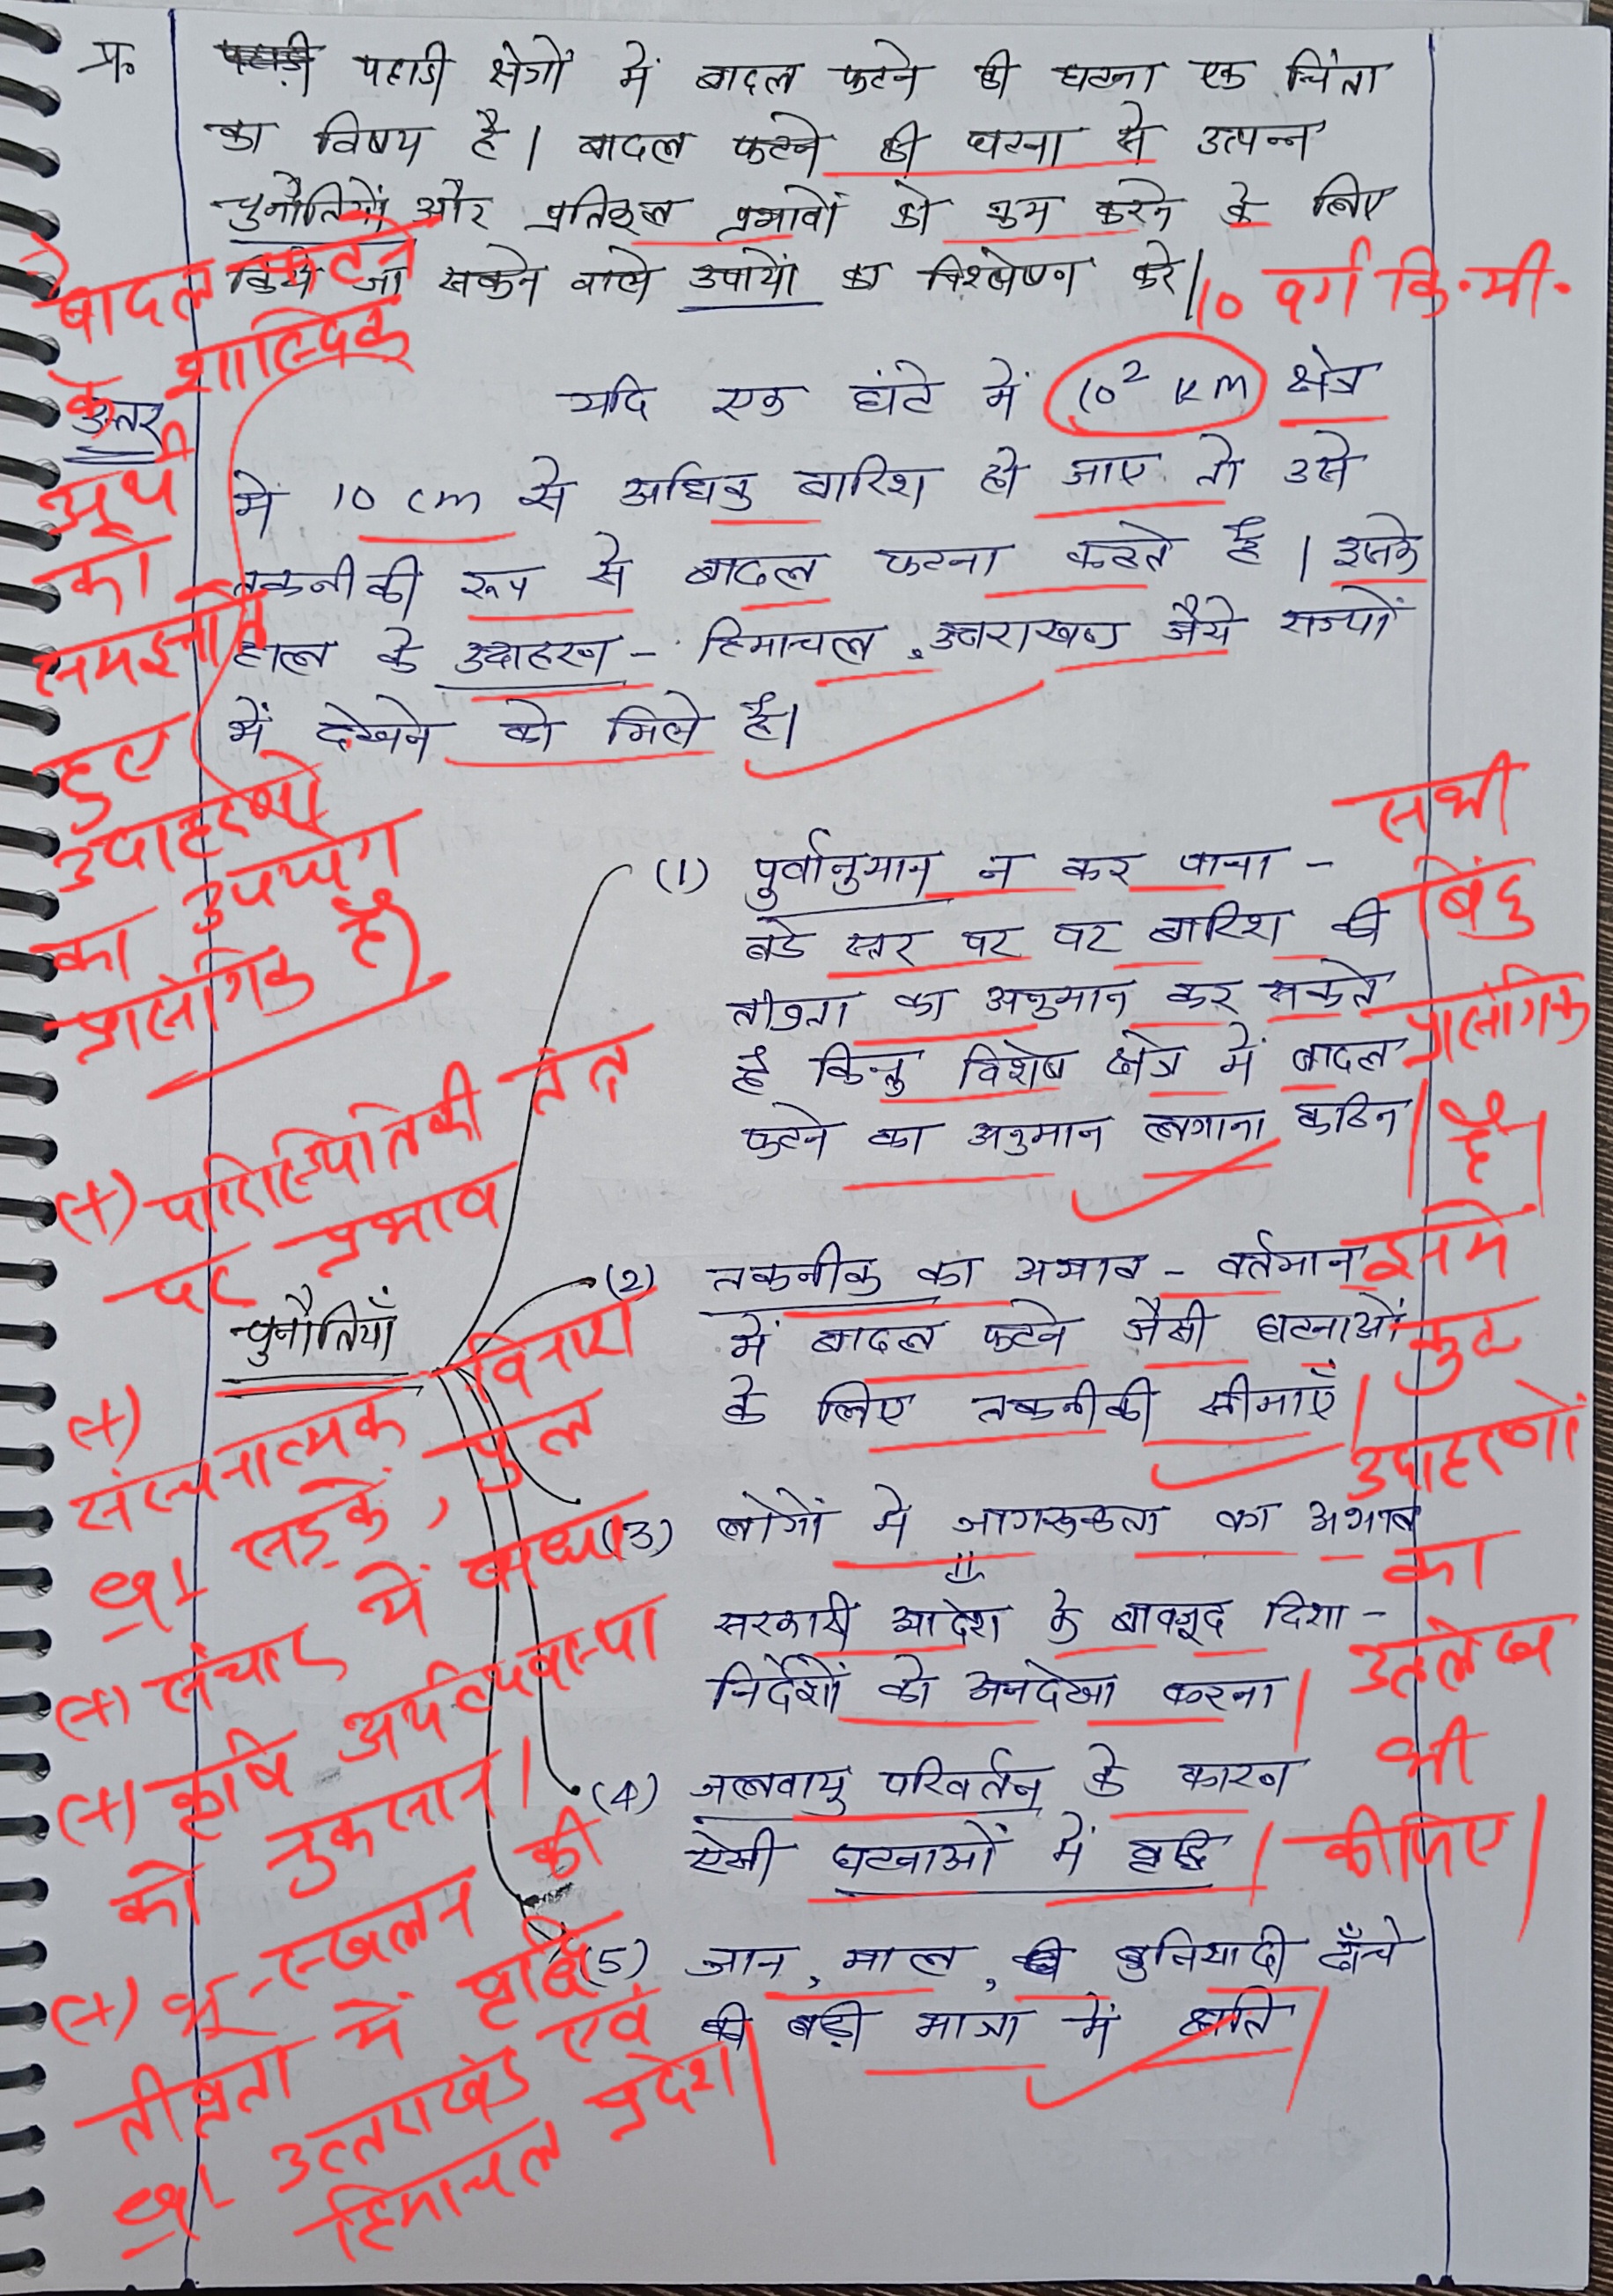 प्र० पहाडी क्षेत्रों में बादल फटने की घटना एक चिंता
का विषय है। बादल फटने की घटना से उत्पन्न
चुनौतियों और प्रतिकूल प्रभावों को कम करने के लिए
किये जा सकने वाले उपायों का विश्लेषण करे।
10 वर्ग कि.मी.
उत्तर
यदि एक घंटे में 10² km क्षेत्र
में 10 cm से अधिक बारिश हो जाए तो उसे
तकनीकी रूप से बादल फटना कहते है। इसके
हाल के उदाहरण - हिमाचल, उत्तराखण्ड जैसे राज्यों
में देखने को मिले है।
बादल फटने
के शाब्दिक
अर्थ
को
समझाते
हुए
उदाहरणों
का उपयोग
प्रासंगिक है।
चुनौतियाँ
(1) पुर्वानुमान न कर पाना -
बडे स्तर पर पर बारिश की
तीव्रता का अनुमान कर सकते
है किन्तु विशेष क्षेत्र में बादल
फटने का अनुमान लगाना कठिन
(2) तकनीक का अभाव - वर्तमान
में बादल फटने जैसी घटनाओं
के लिए तकनीकी सीमाएँ
(3) लोगों में जागरूकता का अभाव
सरकारी आदेश के बावजूद दिशा-
निर्देशों को अनदेखा करना
(4) जलवायु परिवर्तन के कारण
ऐसी घटनाओं में वृद्धि
(5) जान, माल, बुनियादी ढाँचे
की बड़ी मात्रा में क्षति
सभी
बिंदु
प्रासंगिक
है।
इसमें
कुछ
उदाहरणों
का
उल्लेख
भी
कीजिए।
(+) पारिस्थितिकी तंत्र
पर प्रभाव
(+) संरचनात्मक विनाश
सड़कें, पुल
(+) संचार में बाधा
(+) कृषि अर्थव्यवस्था
को नुकसान।
(+) भू-स्खलन की
तीव्रता में वृद्धि
उत्तराखंड एवं
हिमाचल प्रदेश।